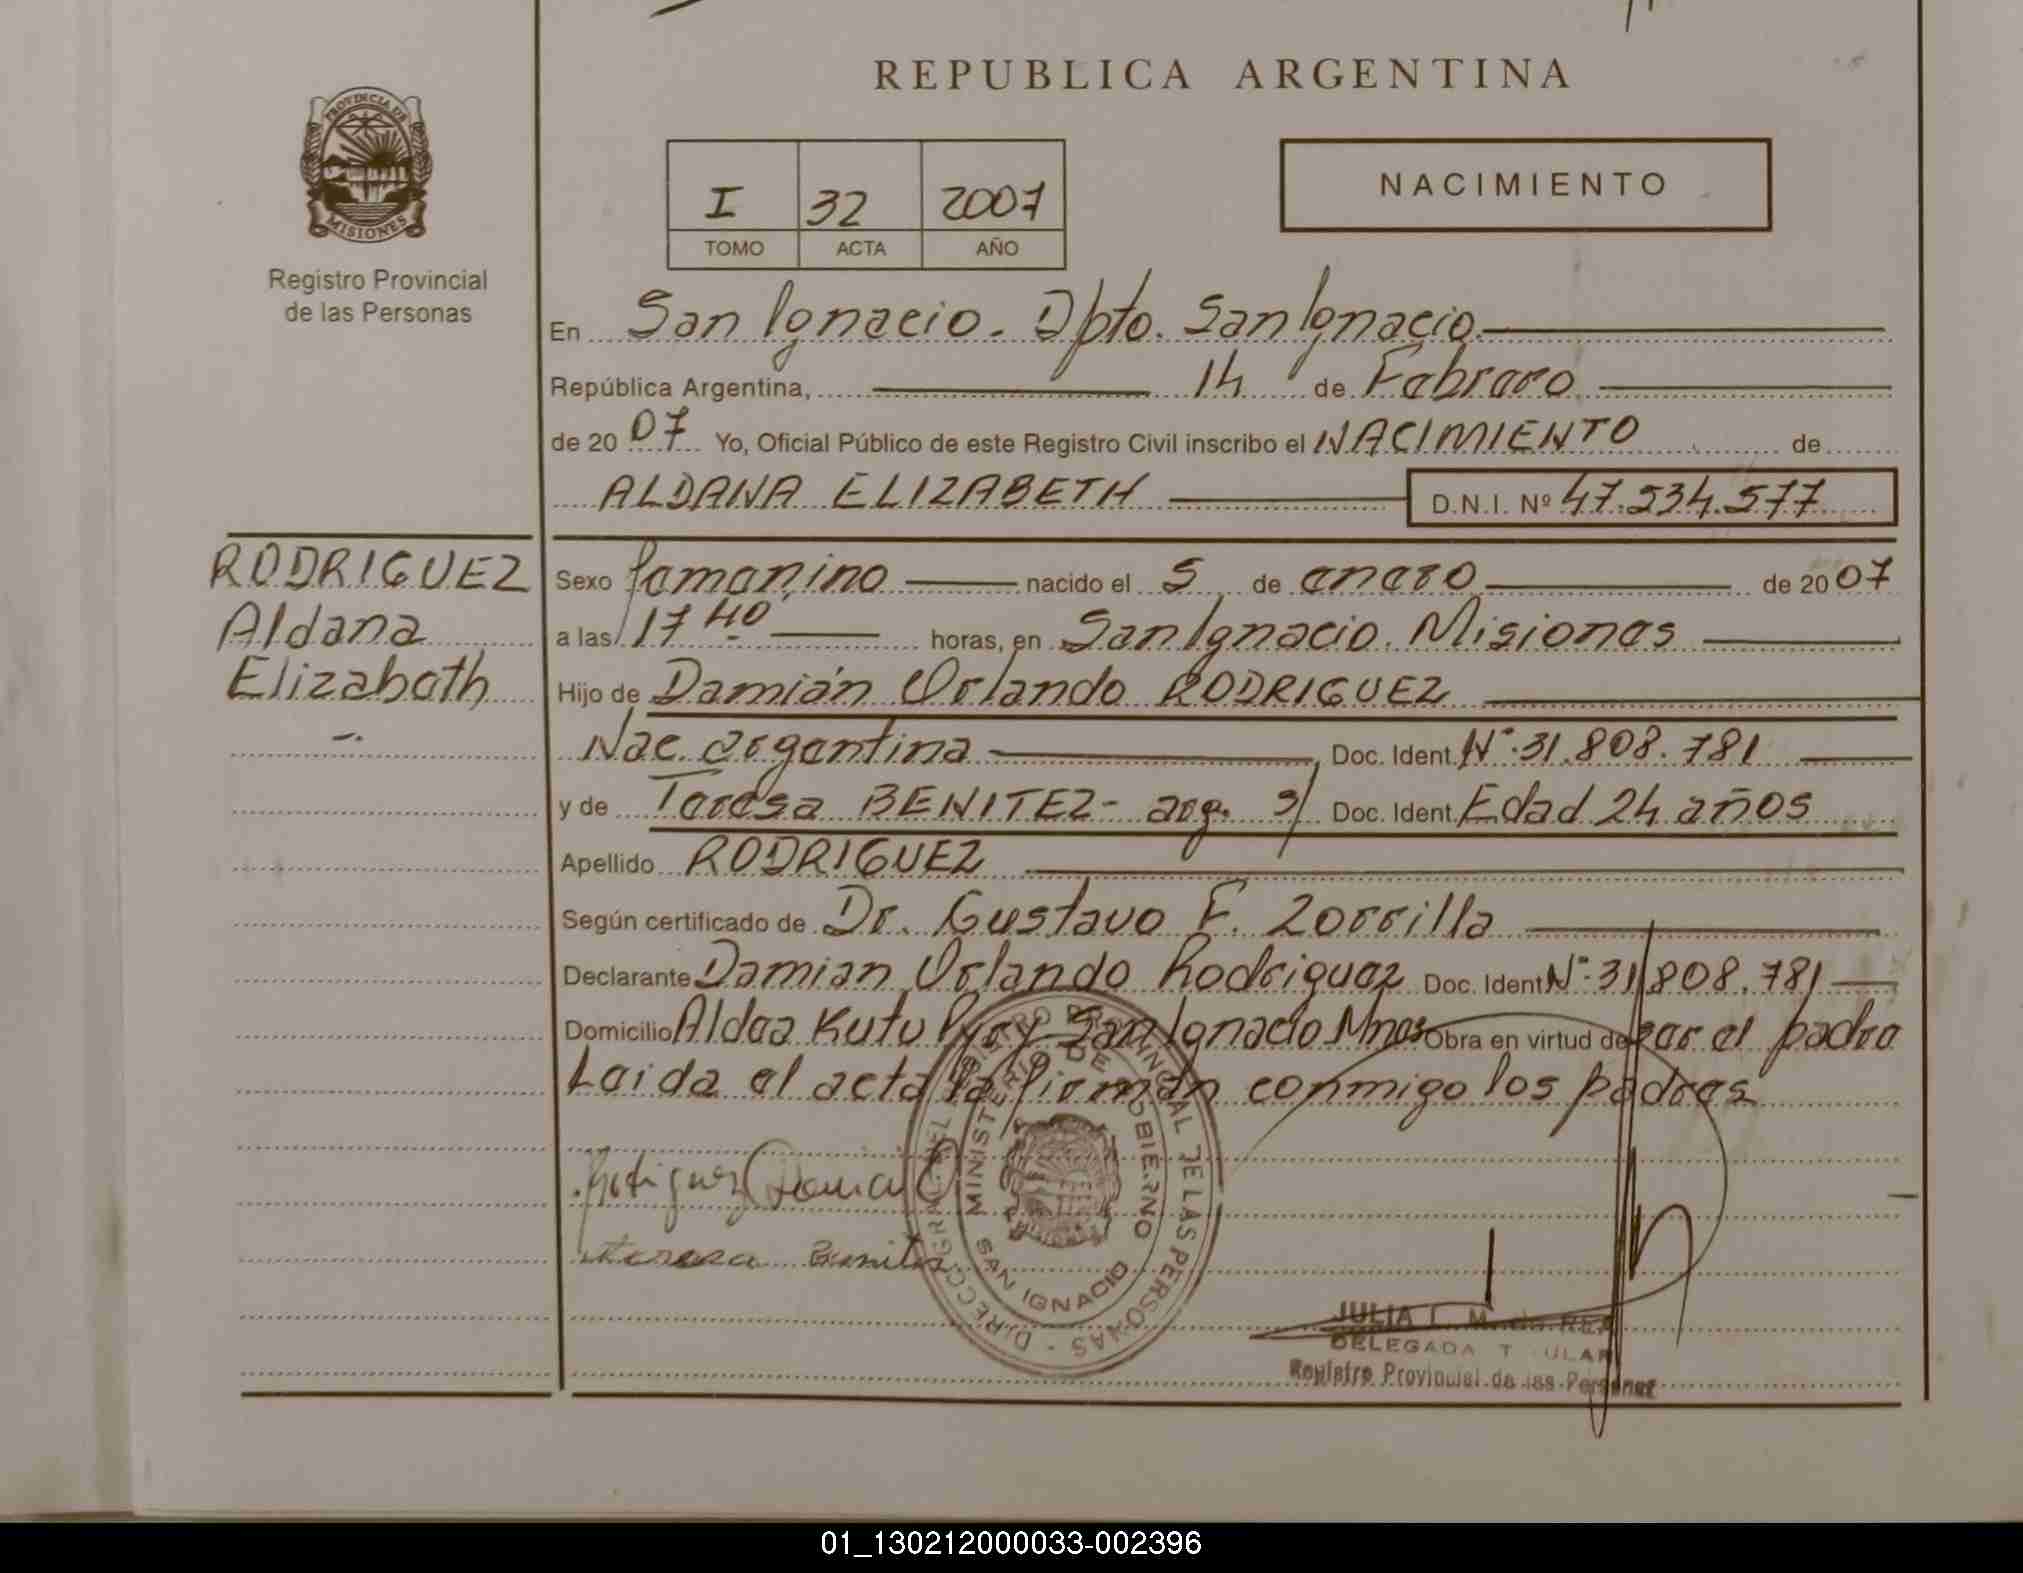 REPUBLICA ARGENTINA
PROVINCIA DE
MISIONES
Registro Provincial
de las Personas
I 32 2007
TOMO ACTA AÑO
NACIMIENTO
En San Ignacio. Dpto. San Ignacio
República Argentina, 14 de Febrero
de 20 07 Yo, Oficial Público de este Registro Civil inscribo el NACIMIENTO de
ALDANA ELIZABETH D.N.I. Nº 47.534.577
RODRIGUEZ
Aldana
Elizabeth
Sexo femenino nacido el 5 de enero de 20 07
a las 17 40 horas, en San Ignacio. Misiones
Hijo de Damián Orlando RODRIGUEZ
Nac. argentina Doc. Ident. Nº 31.808.781
y de Teresa BENITEZ - arg. s/ Doc. Ident. Edad 24 años
Apellido RODRIGUEZ
Según certificado de Dr. Gustavo F. Zorrilla
Declarante Damian Orlando Rodriguez Doc. Ident Nº 31.808.781
Domicilio Aldea Kutu Py. San Ignacio Mnes Obra en virtud de ser el padre
Leida el acta la firman conmigo los padres
Rodriguez Damian O
teresa Benitez
DIRECCION GRAL. DEL REGISTRO PROVINCIAL DE LAS PERSONAS
MINISTERIO DE GOBIERNO
SAN IGNACIO
JULIA
DELEGADA TITULAR
Registro Provincial de las Personas
01_130212000033-002396